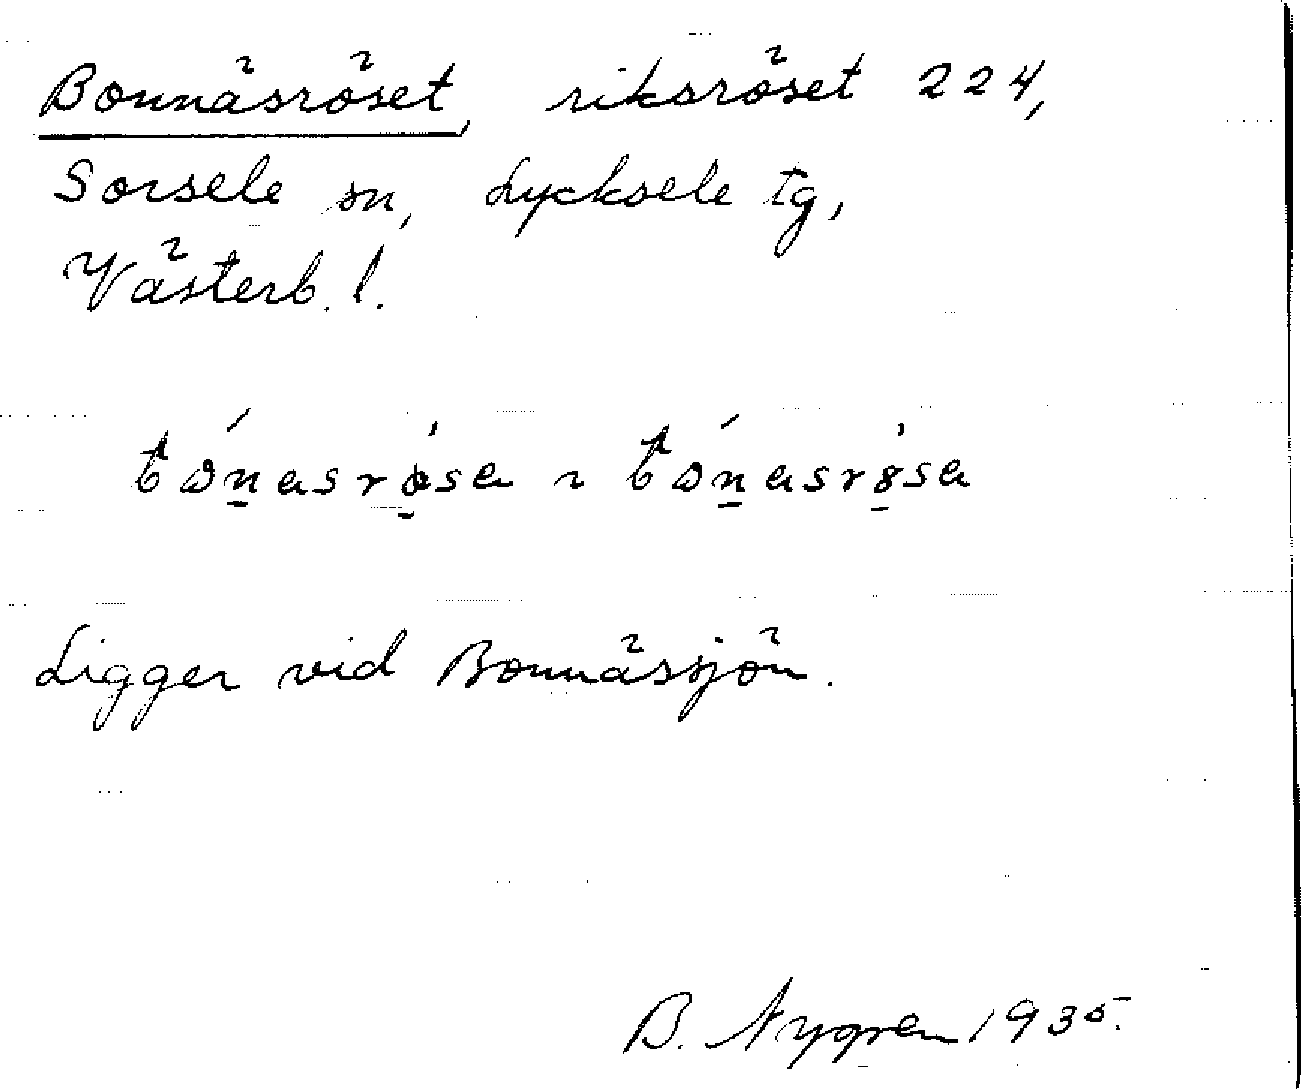 Bonnäsröset, riksröset 224,
Sorsele sn, Lycksele tg,
Västerb. l.
bónasrǿsa ~ bónasrǿsa
Ligger vid Bonnässjön.
B. Nygren 1935.